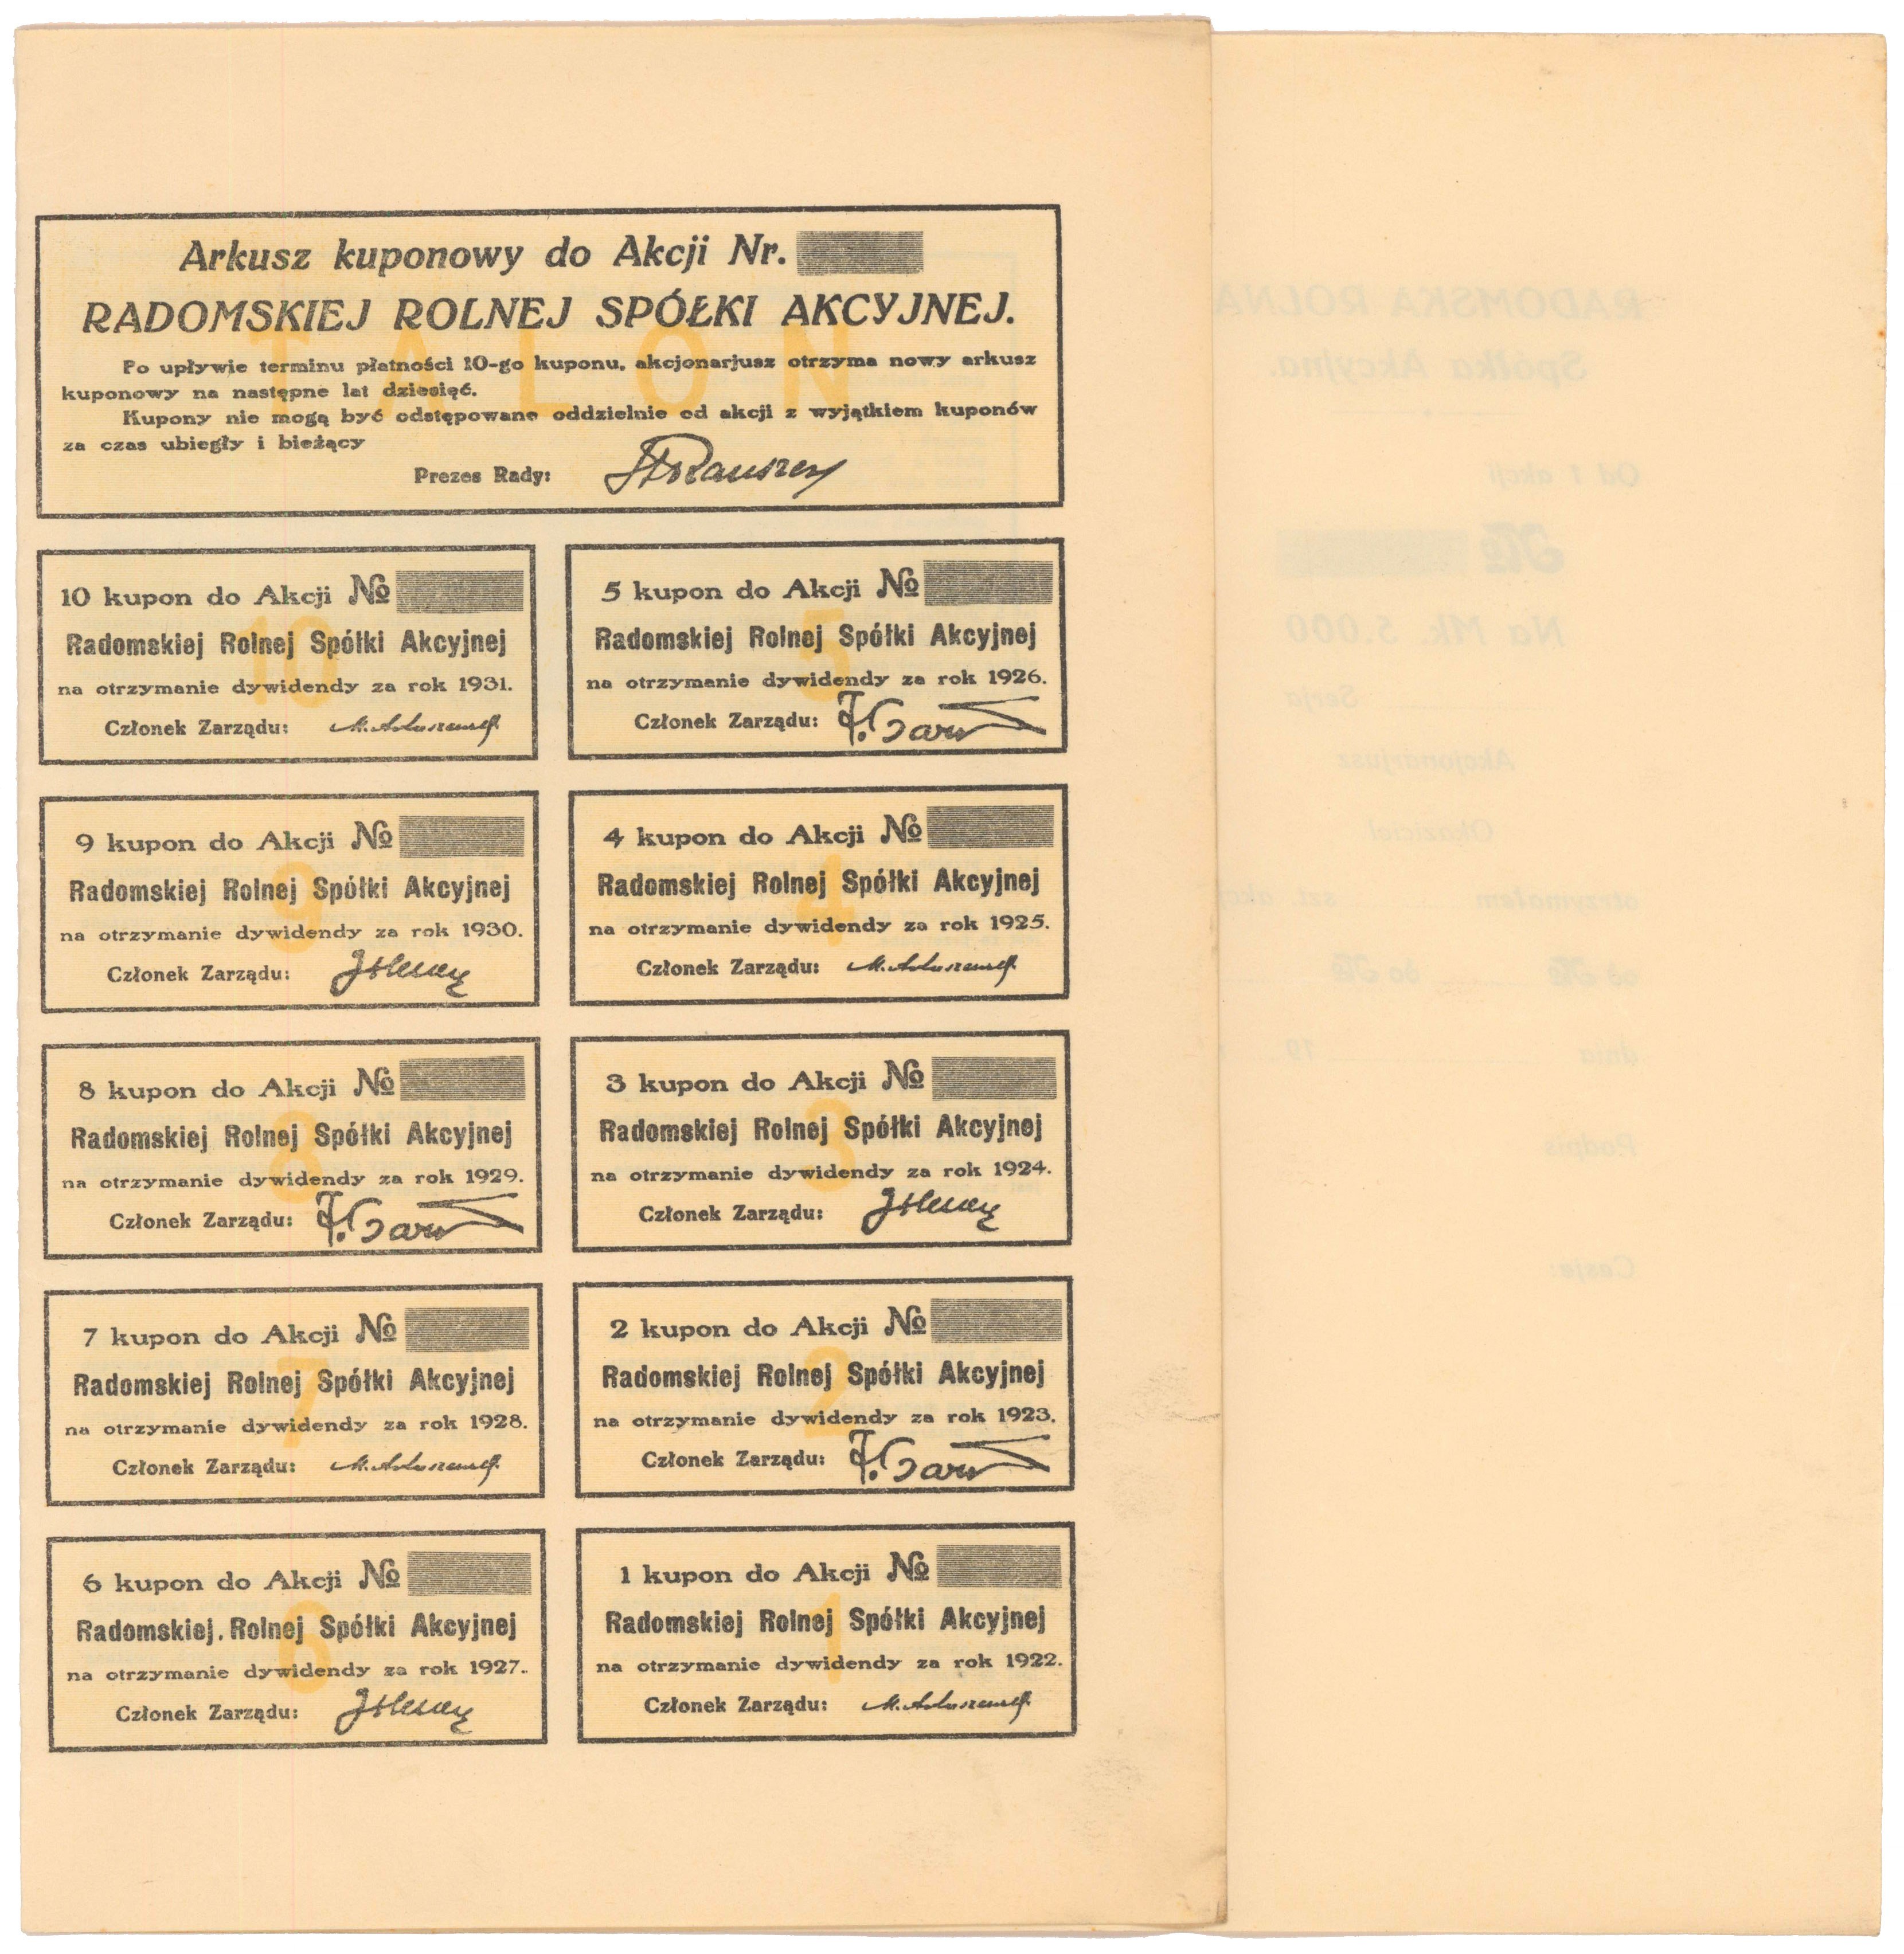 Arkusz kuponowy do Akcji Nr.
RADOMSKIEJ ROLNEJ SPÓŁKI AKCYJNEJ.
TALON
Po upływie terminu płatności 10-go kuponu, akcjonarjusz otrzyma nowy arkusz
kuponowy na następne lat dziesięć.
Kupony nie mogą być odstępowane oddzielnie od akcji z wyjątkiem kuponów
za czas ubiegły i bieżący
Prezes Rady:
10 kupon do Akcji №
10
Radomskiej Rolnej Spółki Akcyjnej
na otrzymanie dywidendy za rok 1931.
Członek Zarządu:
9 kupon do Akcji №
9
Radomskiej Rolnej Spółki Akcyjnej
na otrzymanie dywidendy za rok 1930.
Członek Zarządu:
8 kupon do Akcji №
8
Radomskiej Rolnej Spółki Akcyjnej
na otrzymanie dywidendy za rok 1929.
Członek Zarządu:
7 kupon do Akcji №
7
Radomskiej Rolnej Spółki Akcyjnej
na otrzymanie dywidendy za rok 1928.
Członek Zarządu:
6 kupon do Akcji №
6
Radomskiej. Rolnej Spółki Akcyjnej
na otrzymanie dywidendy za rok 1927.
Członek Zarządu:
5 kupon do Akcji №
5
Radomskiej Rolnej Spółki Akcyjnej
na otrzymanie dywidendy za rok 1926.
Członek Zarządu:
4 kupon do Akcji №
4
Radomskiej Rolnej Spółki Akcyjnej
na otrzymanie dywidendy za rok 1925.
Członek Zarządu:
3 kupon do Akcji №
3
Radomskiej Rolnej Spółki Akcyjnej
na otrzymanie dywidendy za rok 1924.
Członek Zarządu:
2 kupon do Akcji №
2
Radomskiej Rolnej Spółki Akcyjnej
na otrzymanie dywidendy za rok 1923.
Członek Zarządu:
1 kupon do Akcji №
1
Radomskiej Rolnej Spółki Akcyjnej
na otrzymanie dywidendy za rok 1922.
Członek Zarządu:
RADOMSKA ROLNA
Spółka Akcyjna.
Od 1 akcji
№
Na Mk. 5.000
Serja
Akcjonarjusz
Okaziciel
otrzymałem szt. akcj
od № do №
dnia 19 r
Podpis
Cesja: